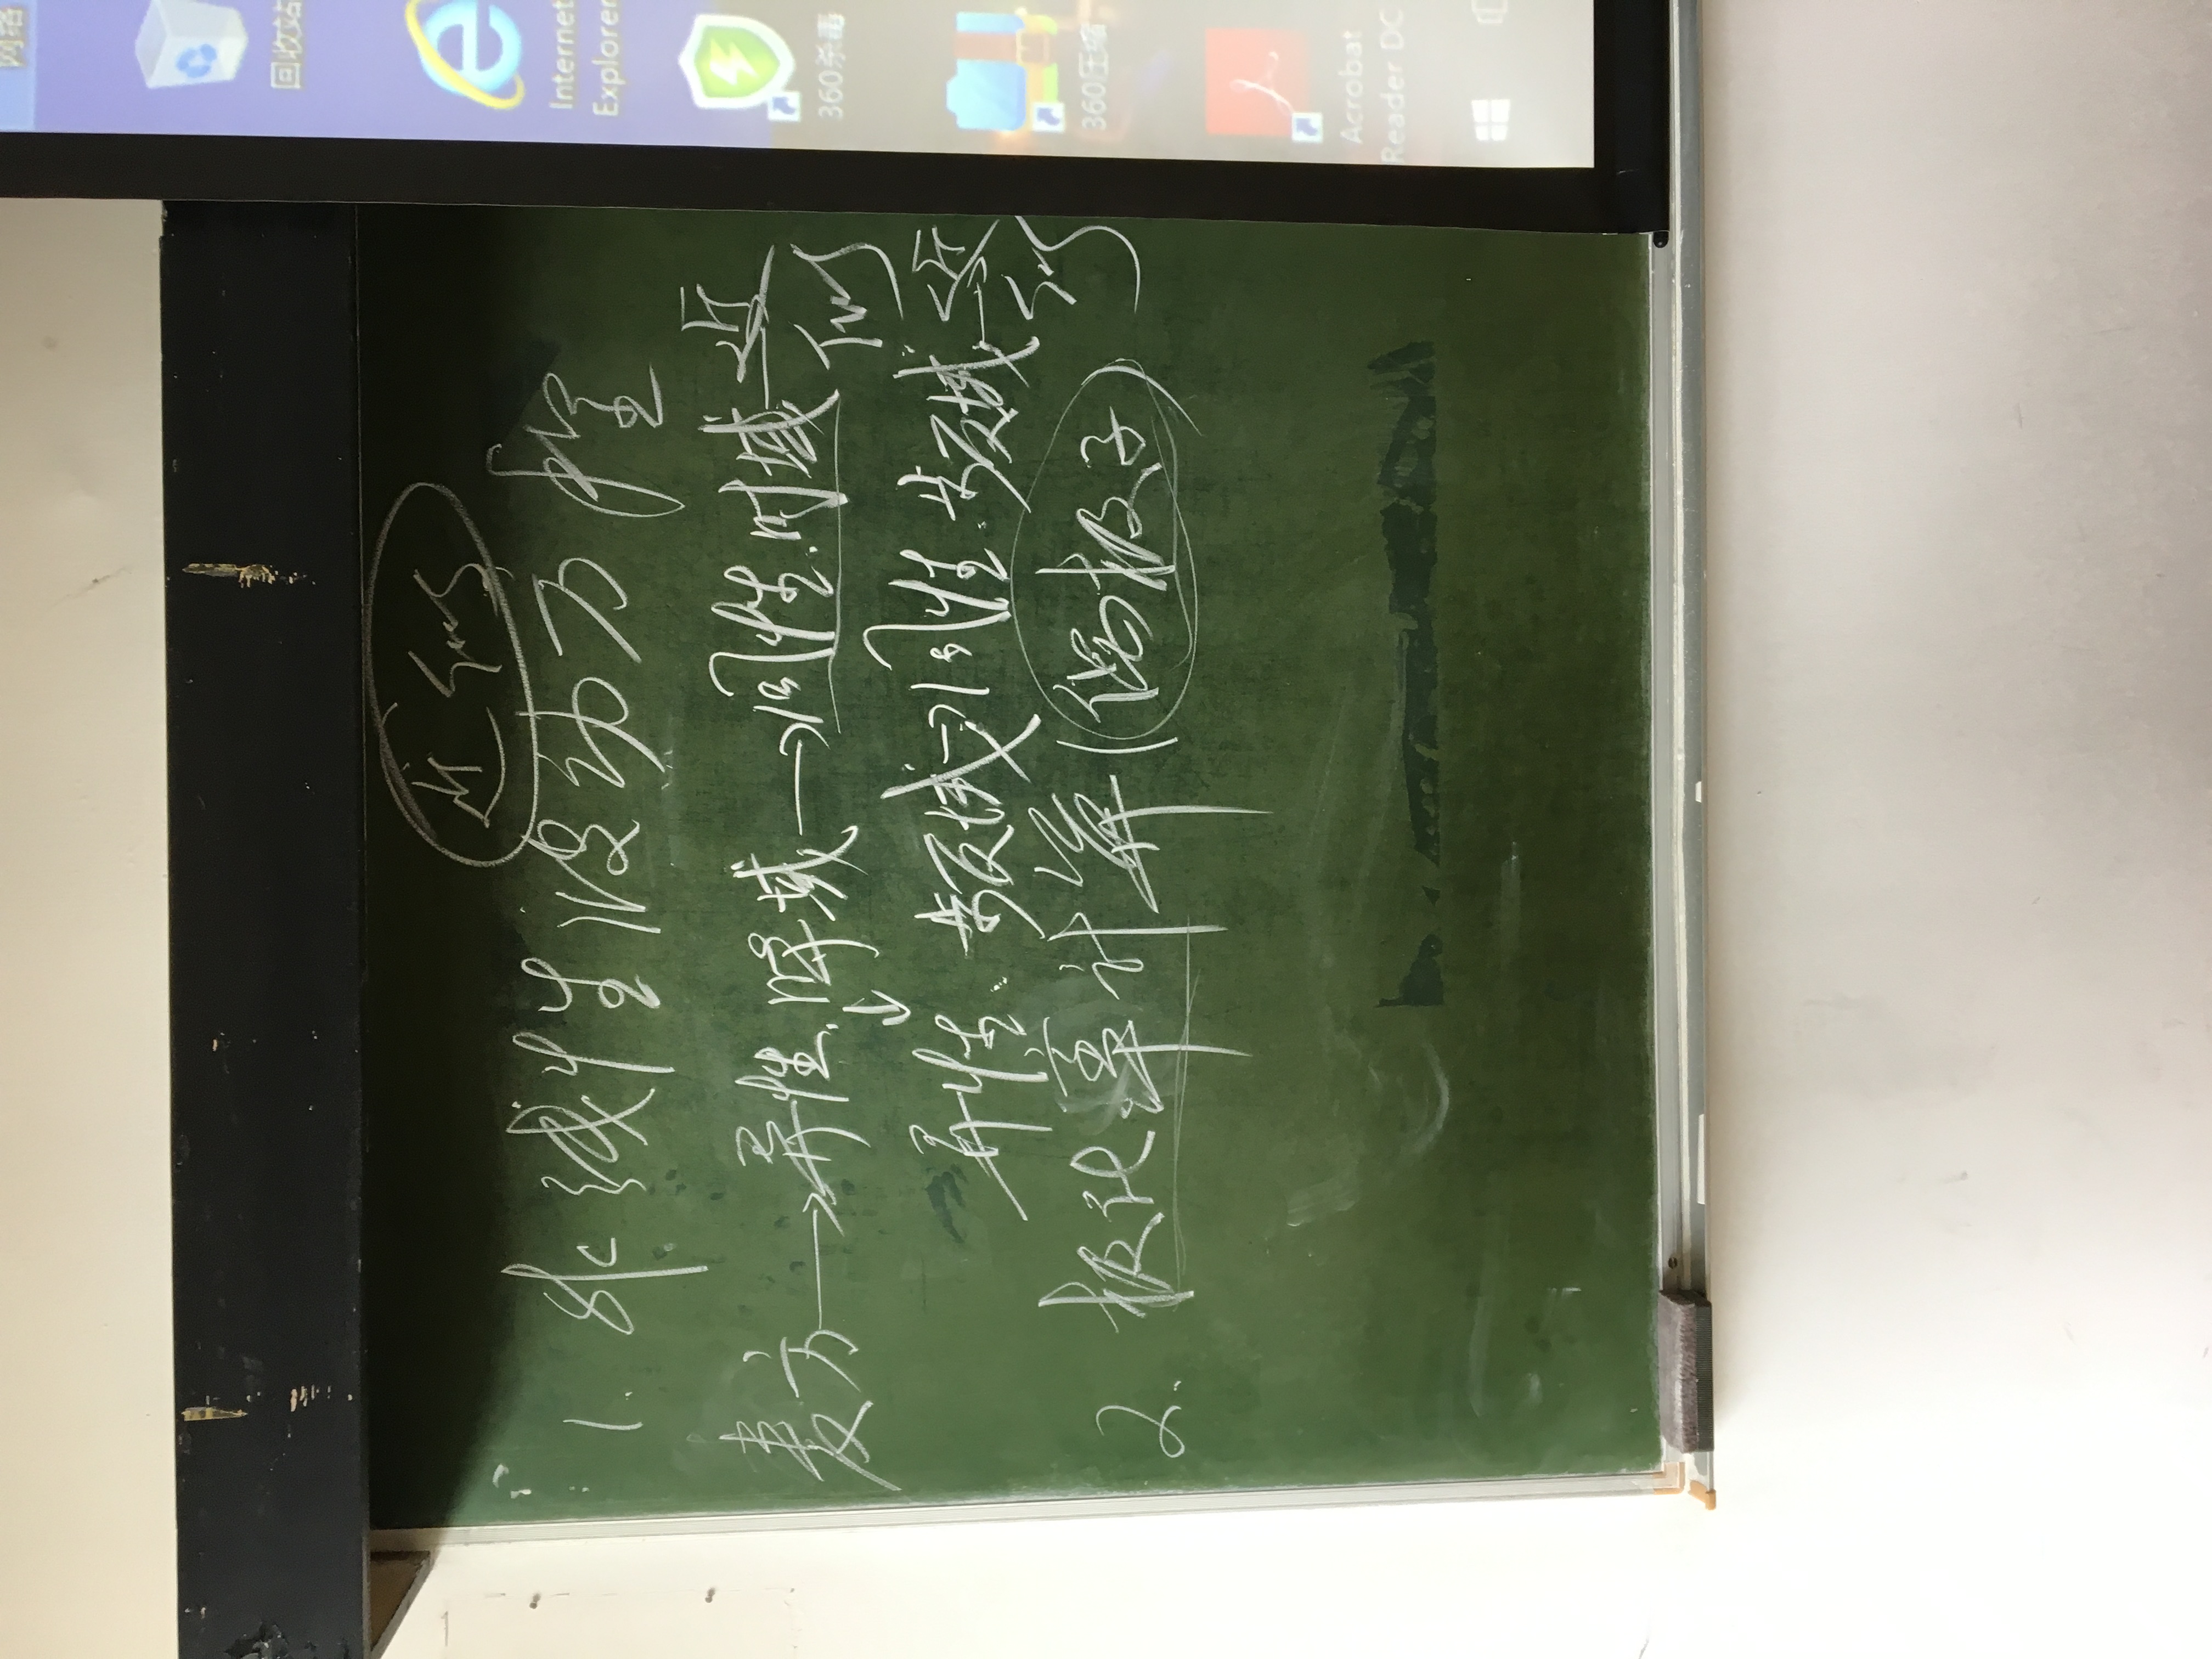 近似
1. 非线性波动方程
麦方→异性.时域→同性.时域→近似
↓
异性.频域→同性.频域→近似
2. 极化率计算(偶极子)
网络
回收站
Internet
Explorer
360杀毒
360压缩
Acrobat
Reader DC